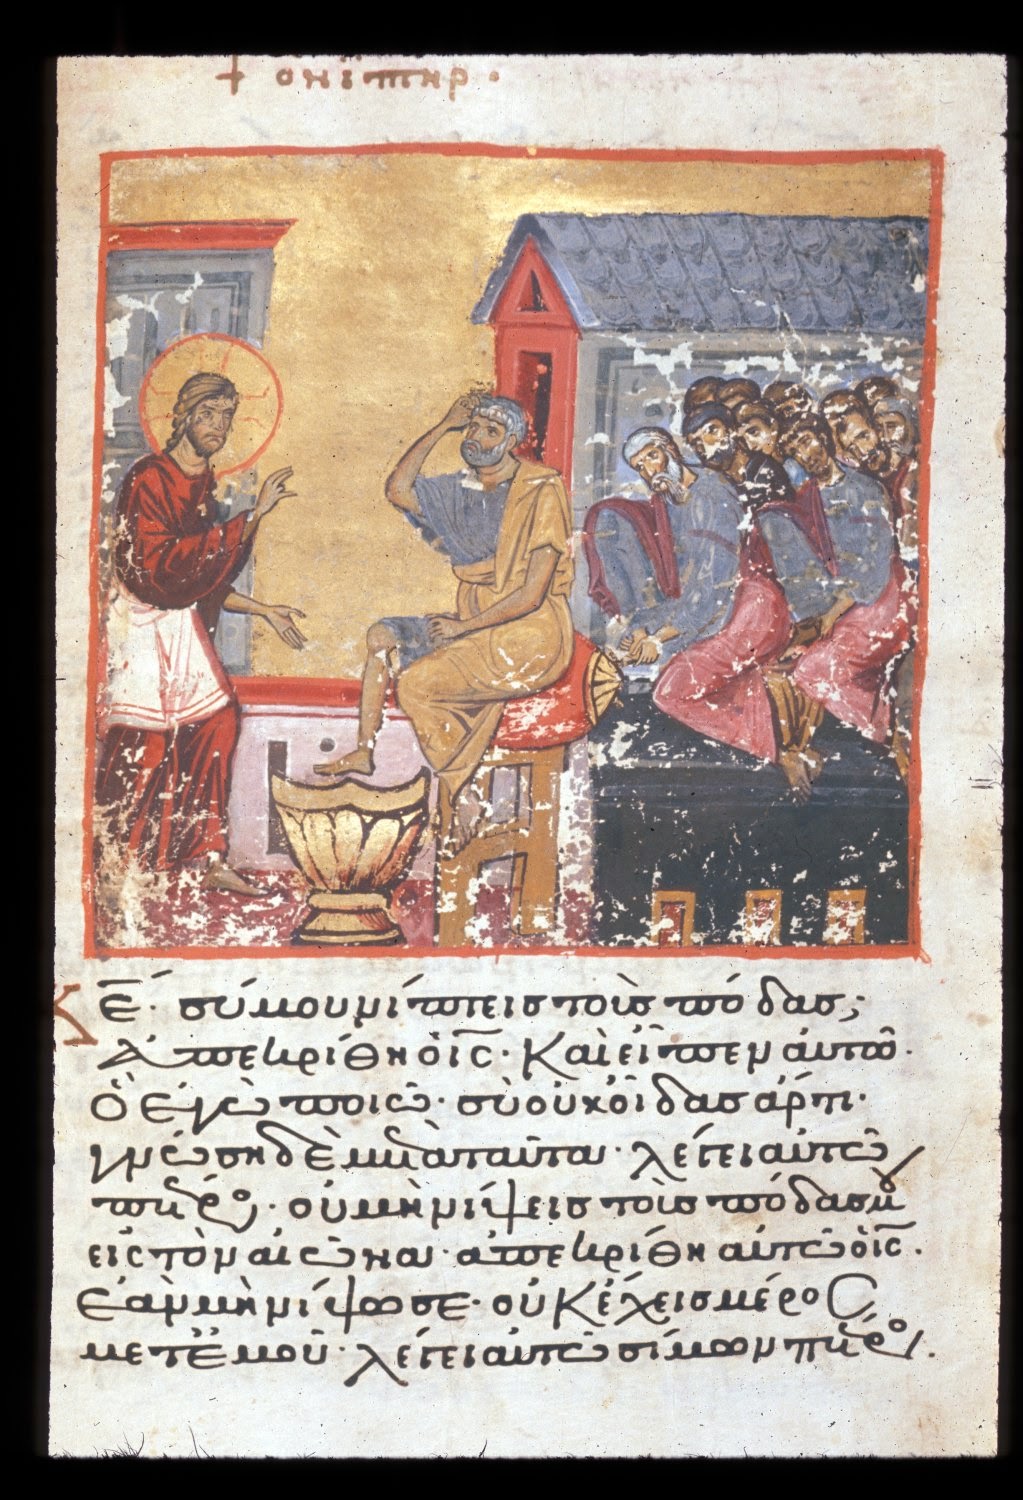 + ὁ νιπτὴρ·
Κε̅· σύ μου νίπτεις τοὺς πόδας;
Ἀπεκρίθη ὁ ι̅ς̅· Καὶ εἶπεν αὐτῶ·
Ὃ ἐγὼ ποιῶ· σὺ οὐκ οἶδας ἄρτι·
γνώση δὲ μετὰ ταῦτα· λέγει αὐτῶ
πέτρο· οὐ μὴ νίψεις τοὺς πόδας μ
εἰς τὸν αἰῶνα· ἀπεκρίθη αὐτῶ ὁ ι̅ς̅·
Ἐὰν μὴ νίψω σε· οὐκ ἔχεις μέρος
μετ ἐμοῦ· λέγει αὐτῶ σίμων πέτρο.